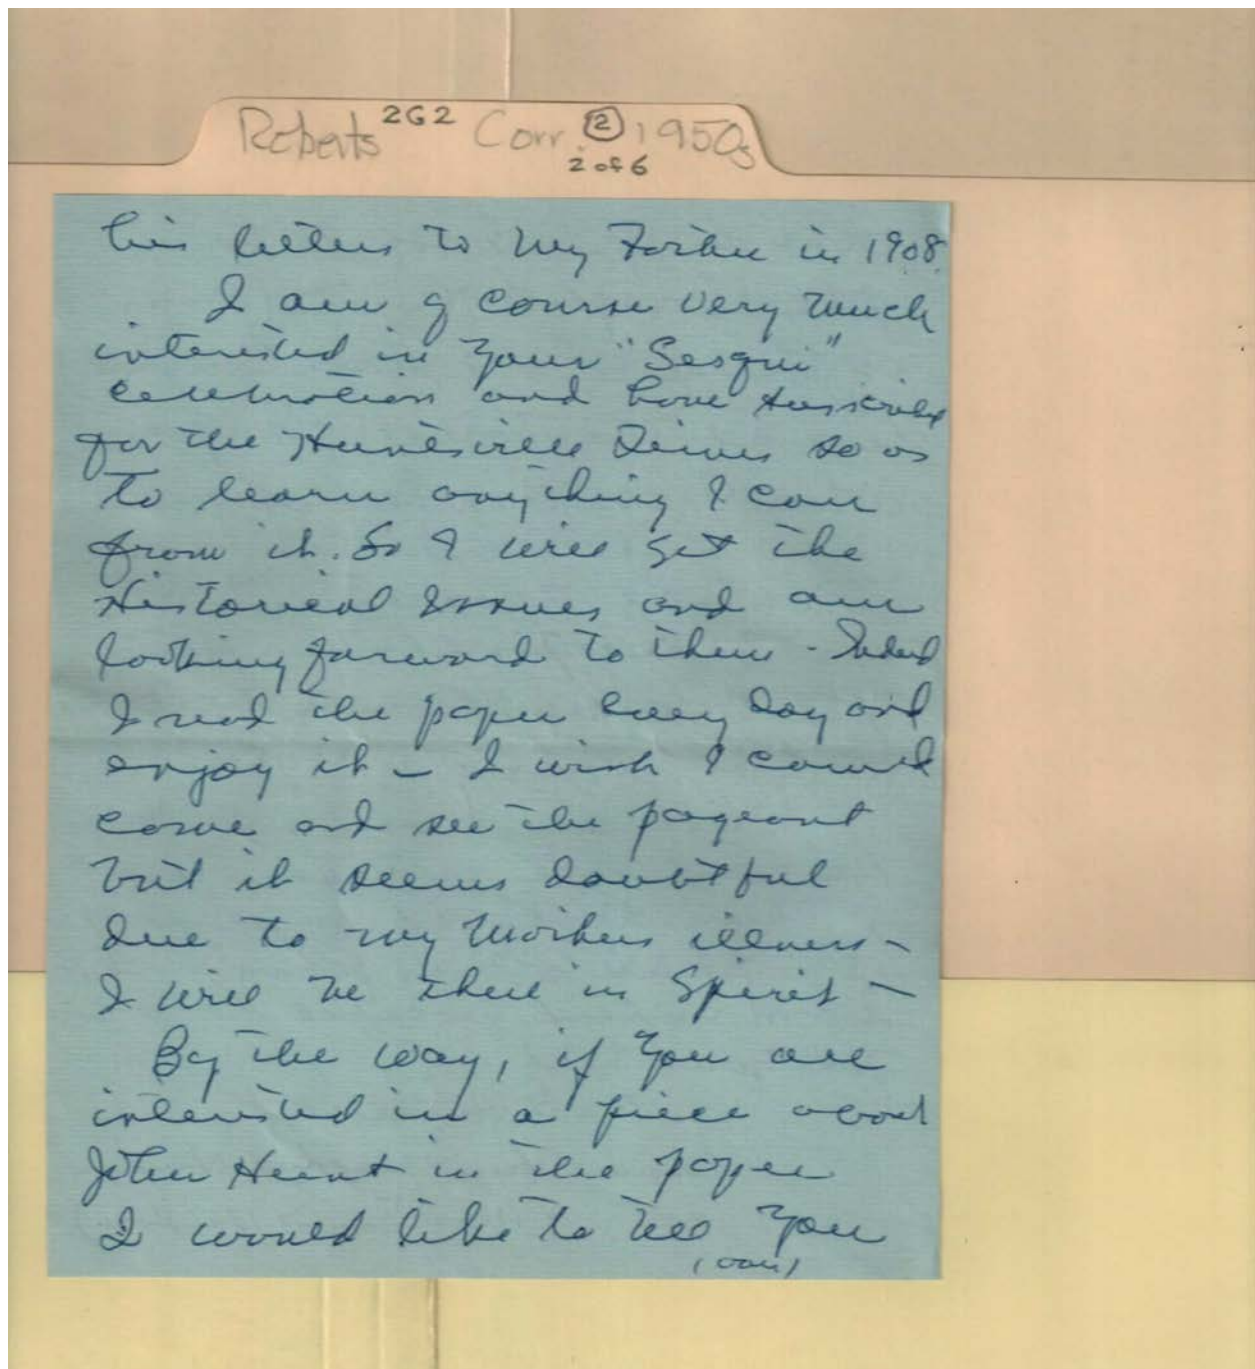 Roberts 2G2 Corr. ② 1950s
2 of 6
his letters to my Father in 1908.
I am of course very much
interested in your "Sesqui"
celebration and have subscribed
for the Huntsville Times so as
to learn anything I can
from it. So I will get the
Historical Issues and am
looking forward to them - Indeed
I read the paper every day and
enjoy it - I wish I could
come and see the pageant
but it seems doubtful
due to my Mothers illness -
I will be there in Spirit -
By the way, if you are
interested in a piece about
John Hunt in the paper
I would like to tell you
(over)